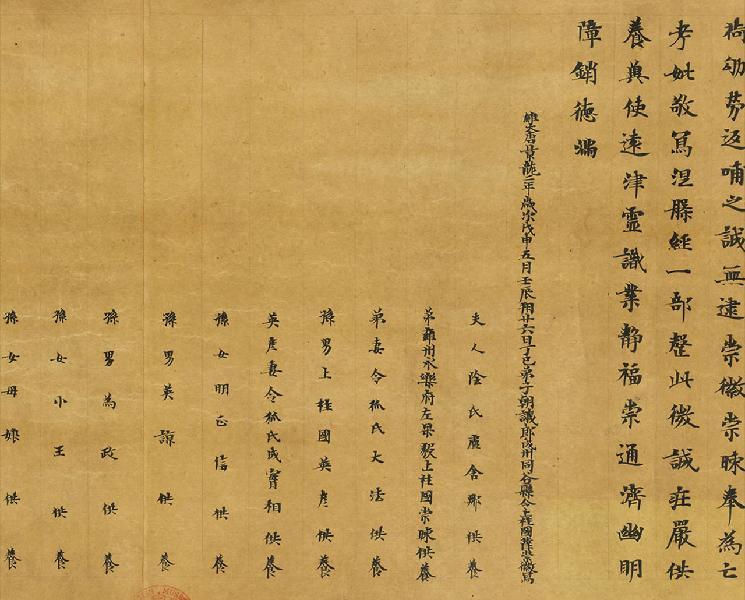 尚幼劳返哺之誠無逮崇徽崇暕奉為亡
考妣敬寫涅槃經一部罄此微誠莊嚴供
養冀使遠津靈識業静福崇通濟幽明
障銷德滿
維大唐景龍二年歲次戊申五月壬辰朔廿六日丁巳弟子朝議郎成州同谷縣令上柱國薛崇徽寫
夫人陰氏盧舍那供養
弟雍州永樂府左果毅上柱國崇暕供養
弟妻令狐氏大法供養
孫男上柱國英彥供養
英彥妻令狐氏成實相供養
孫女明正信供養
孫男英諒供養
孫男為政供養
孫女小王供養
孫女母娘供養